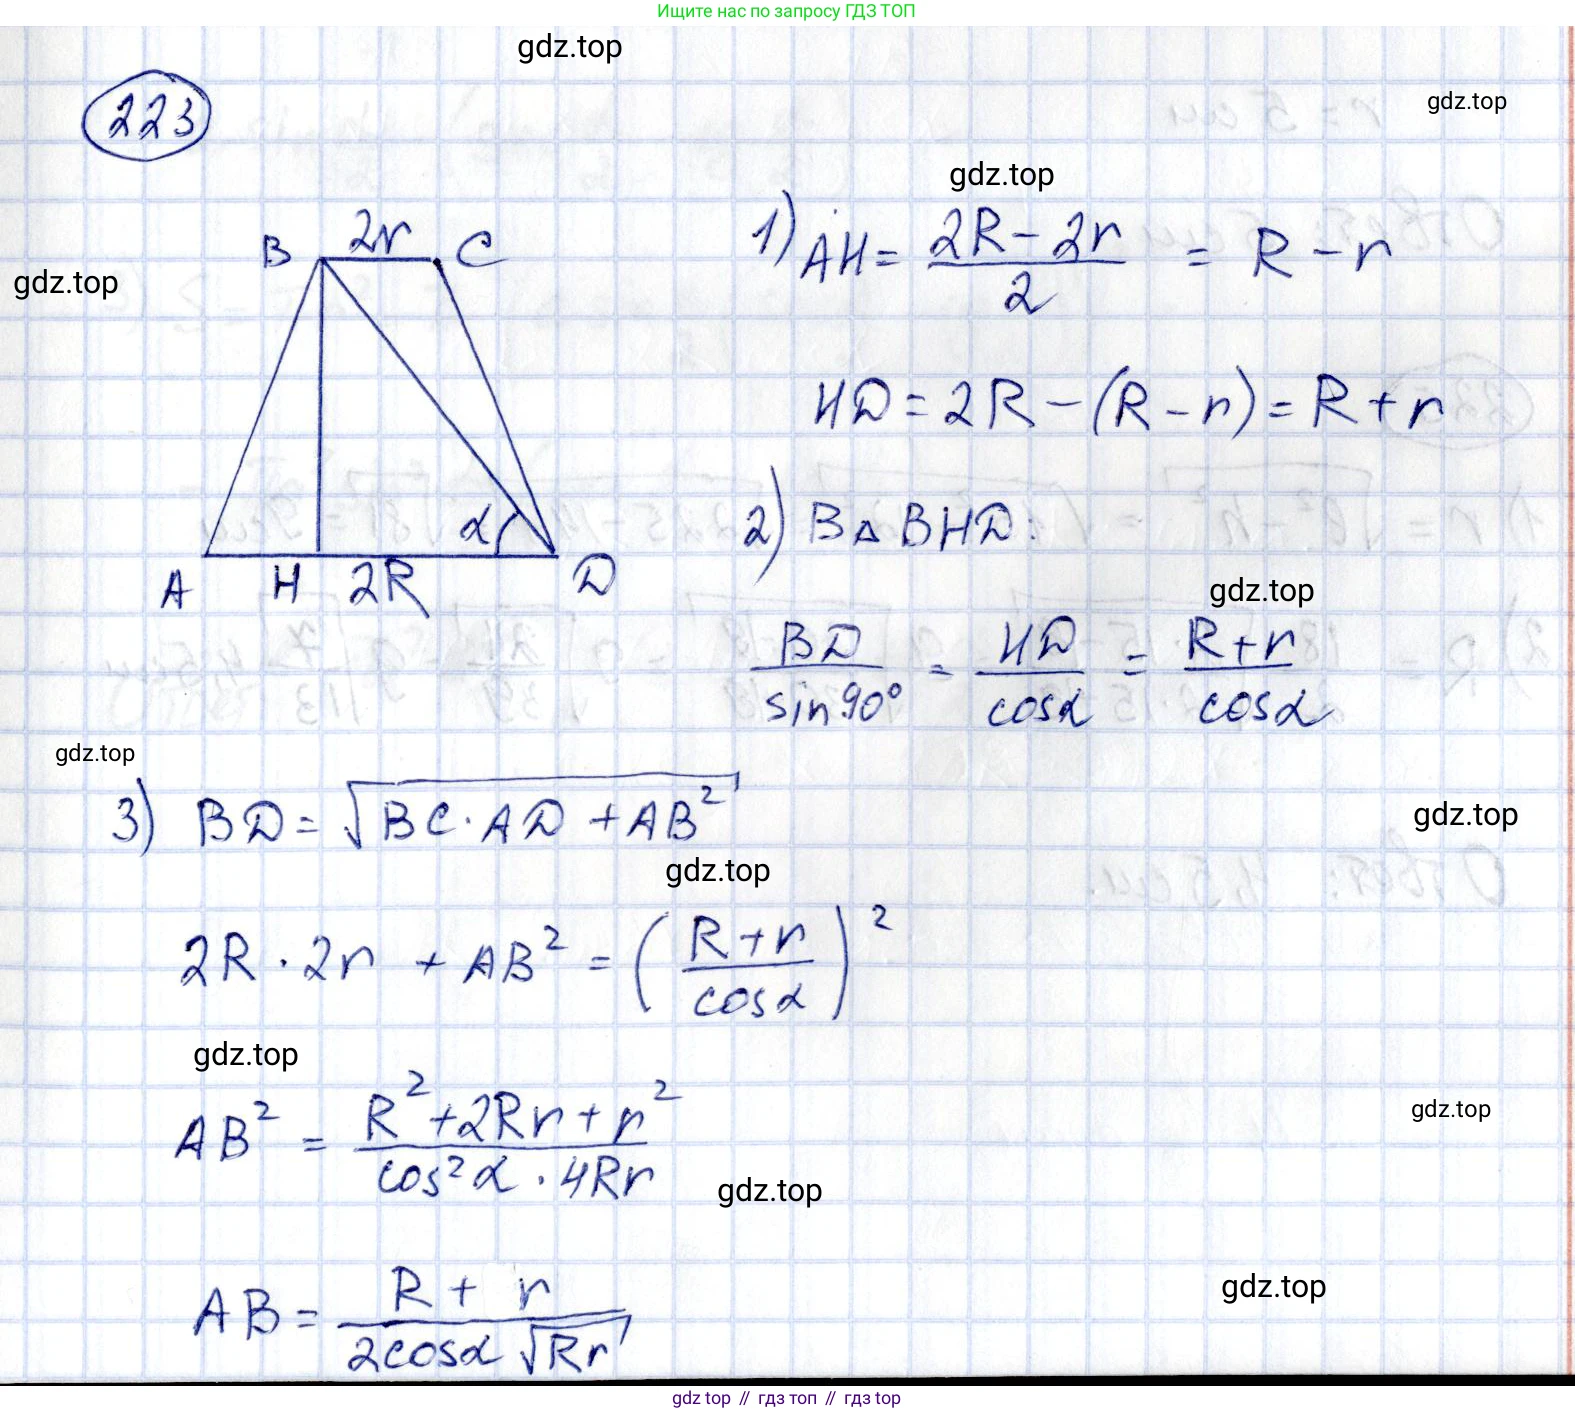 Ищите нас по запросу ГДЗ ТОП
gdz.top
223
gdz.top
gdz.top
2r
B C
gdz.top
1) AH = (2R - 2r)/2 = R - r
HD = 2R - (R - r) = R + r
α
A H 2R D
2) В △ BHD:
gdz.top
BD/sin90° = HD/cosα = (R+r)/cosα
gdz.top
3) BD = √(BC · AD + AB²)
gdz.top
gdz.top
2R · 2r + AB² = ((R+r)/cosα)²
gdz.top
AB² = (R² + 2Rr + r²)/(cos²α · 4Rr)
gdz.top
gdz.top
gdz.top
AB = (R + r)/(2cosα √Rr)
gdz.top // гдз топ // гдз top